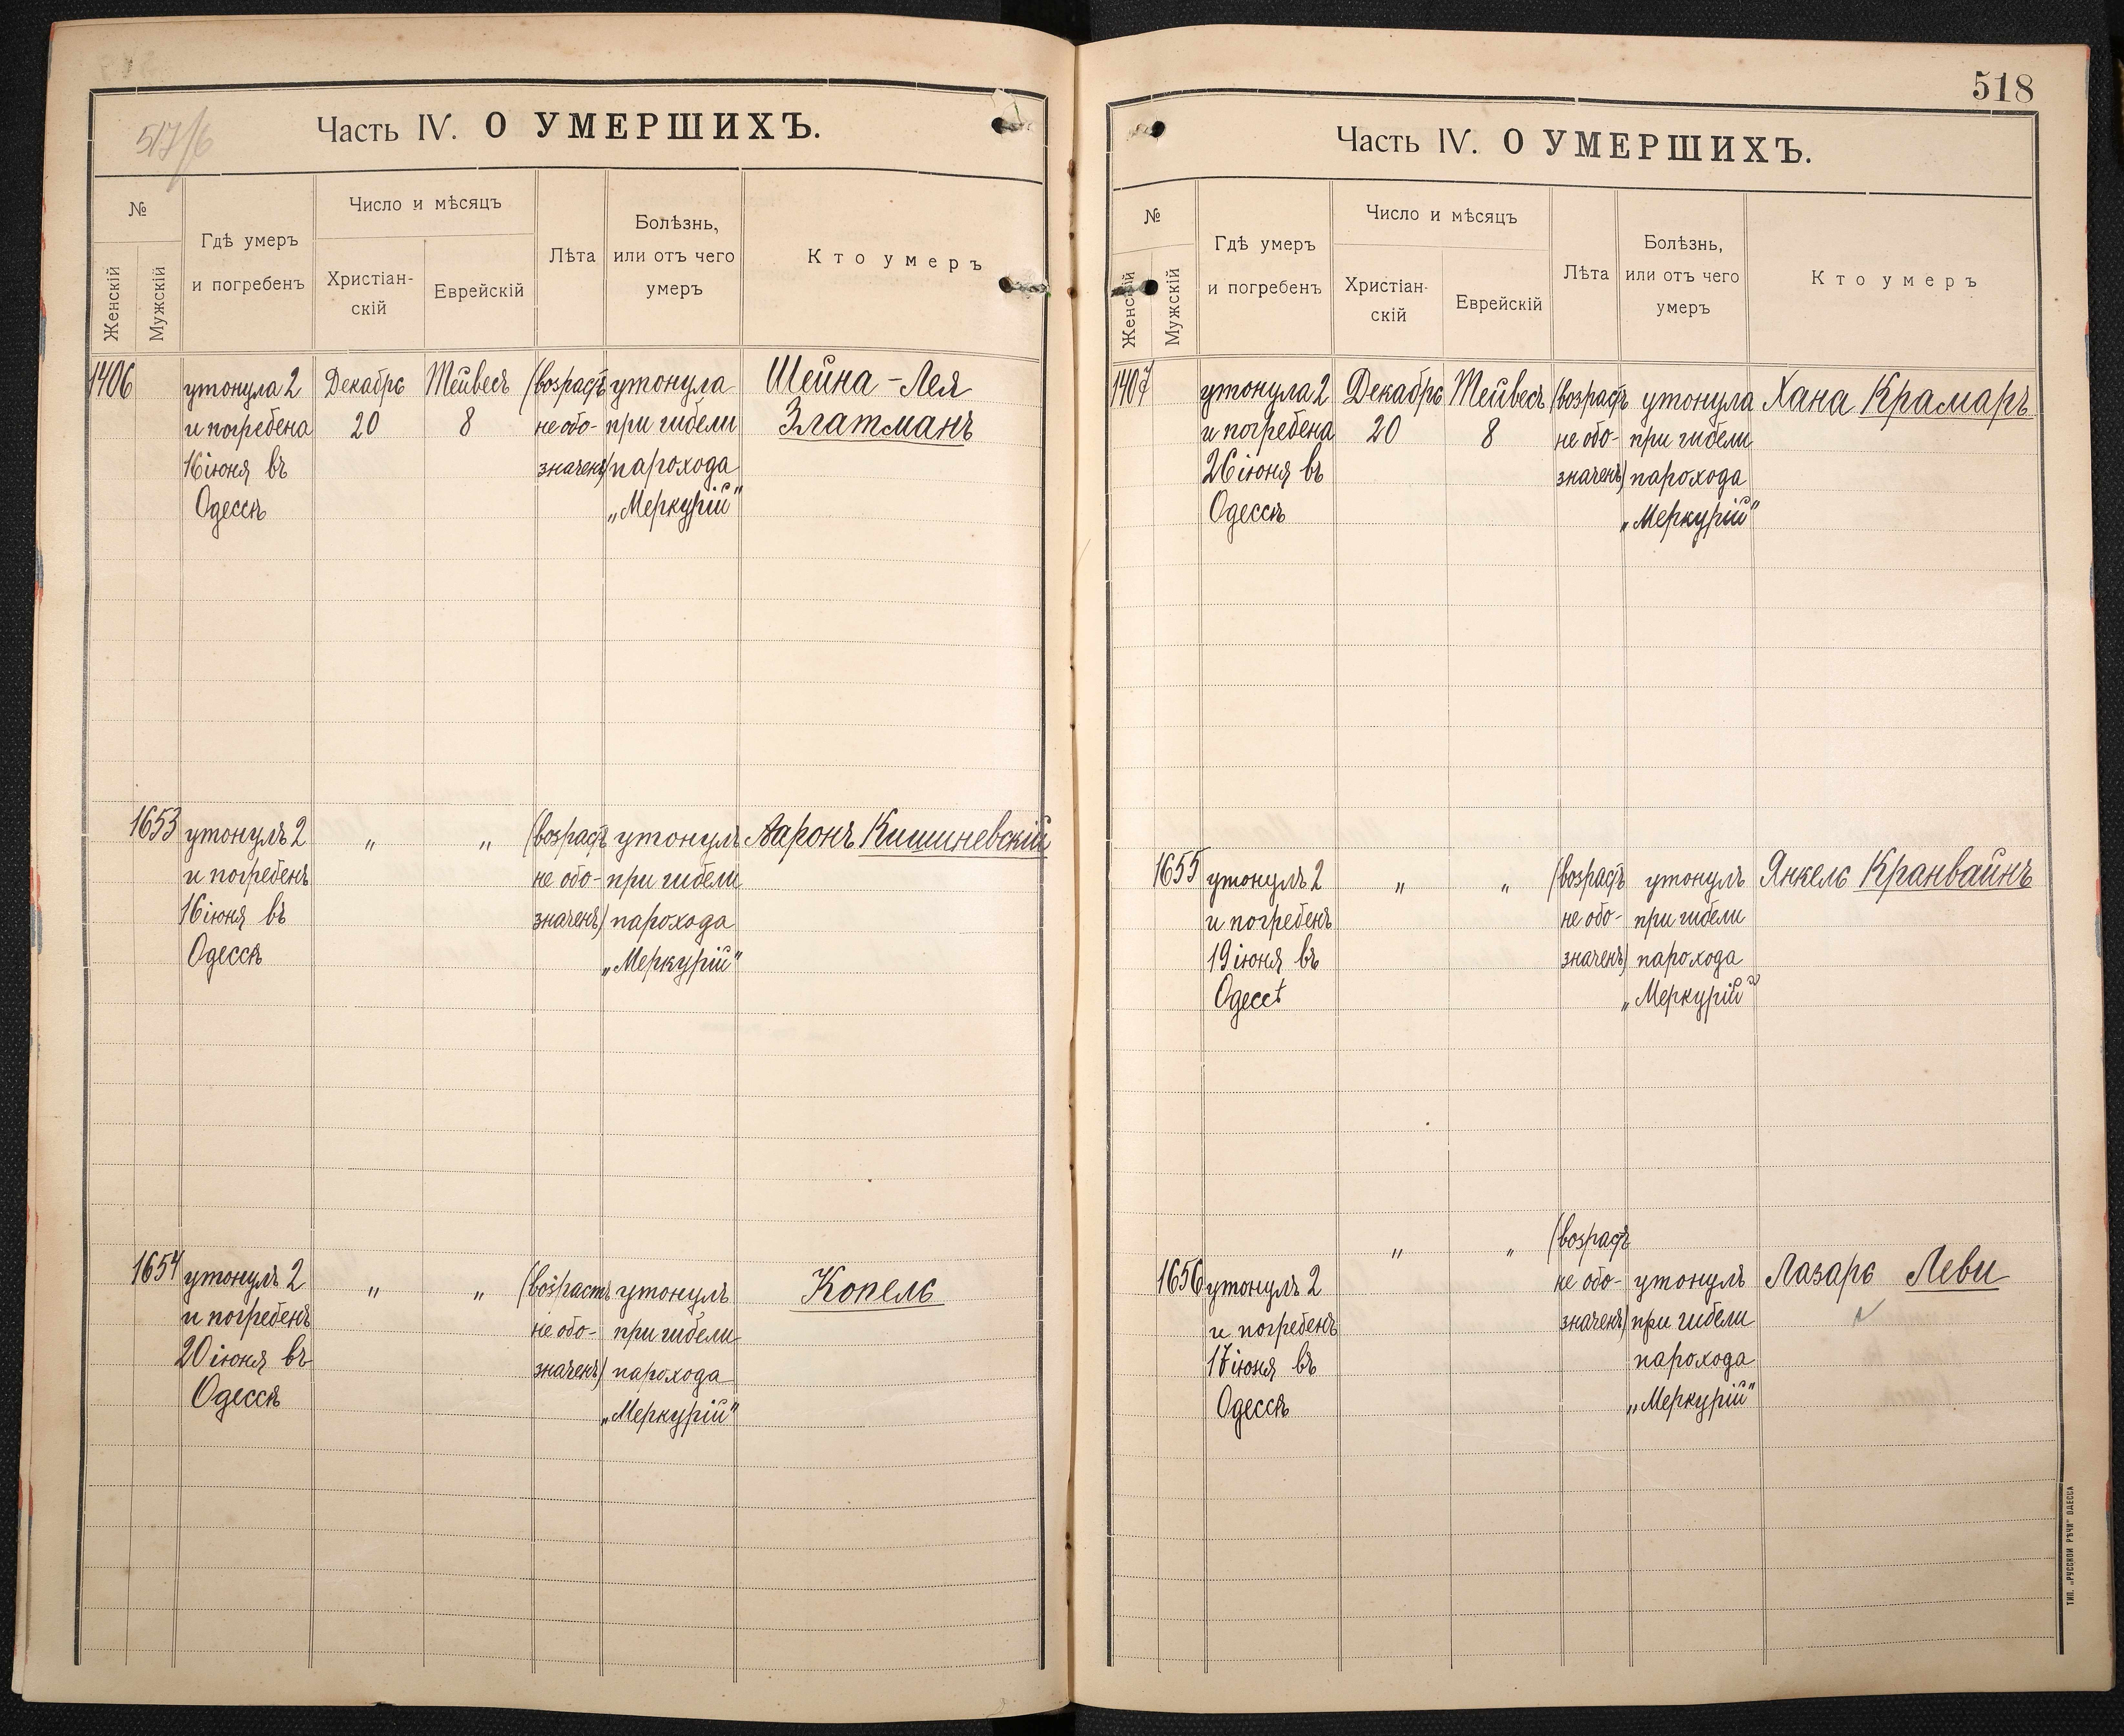 517/6
Часть IV. О УМЕРШИХЪ.
№
Женскій
Мужскій
Гдѣ умеръ
и погребенъ
Число и мѣсяцъ
Христіан-
скій
Еврейскій
Лѣта
Болѣзнь,
или отъ чего
умеръ
Кто умеръ
1406
утонула 2
и погребена
16 іюня въ
Одессѣ
Декабрь
20
Тейвесъ
8
(возрастъ
не обо-
значенъ)
утонула
при гибели
парохода
„Меркурій"
Шейна-Лея
Златманъ
1653
утонулъ 2
и погребенъ
16 іюня въ
Одессѣ
„
„
(возрастъ
не обо-
значенъ)
утонулъ
при гибели
парохода
„Меркурій"
Ааронъ Кишиневскій
1654
утонулъ 2
и погребенъ
20 іюня въ
Одессѣ
„
„
(возрастъ
не обо-
значенъ)
утонулъ
при гибели
парохода
„Меркурій"
Копель
518
Часть IV. О УМЕРШИХЪ.
№
Женскій
Мужскій
Гдѣ умеръ
и погребенъ
Число и мѣсяцъ
Христіан-
скій
Еврейскій
Лѣта
Болѣзнь,
или отъ чего
умеръ
Кто умеръ
1407
утонула 2
и погребена
26 іюня въ
Одессѣ
Декабрь
20
Тейвесъ
8
(возрастъ
не обо-
значенъ)
утонула
при гибели
парохода
„Меркурій"
Хана Крамаръ
1655
утонулъ 2
и погребенъ
19 іюня въ
Одессѣ
„
„
(возрастъ
не обо-
значенъ)
утонулъ
при гибели
парохода
„Меркурій"
Янкель Кранвайнъ
1656
утонулъ 2
и погребенъ
17 іюня въ
Одессѣ
„
„
(возрастъ
не обо-
значенъ)
утонулъ
при гибели
парохода
„Меркурій"
Лазарь Леви
ТИП. „РУССКОЙ РѢЧИ" ОДЕССА